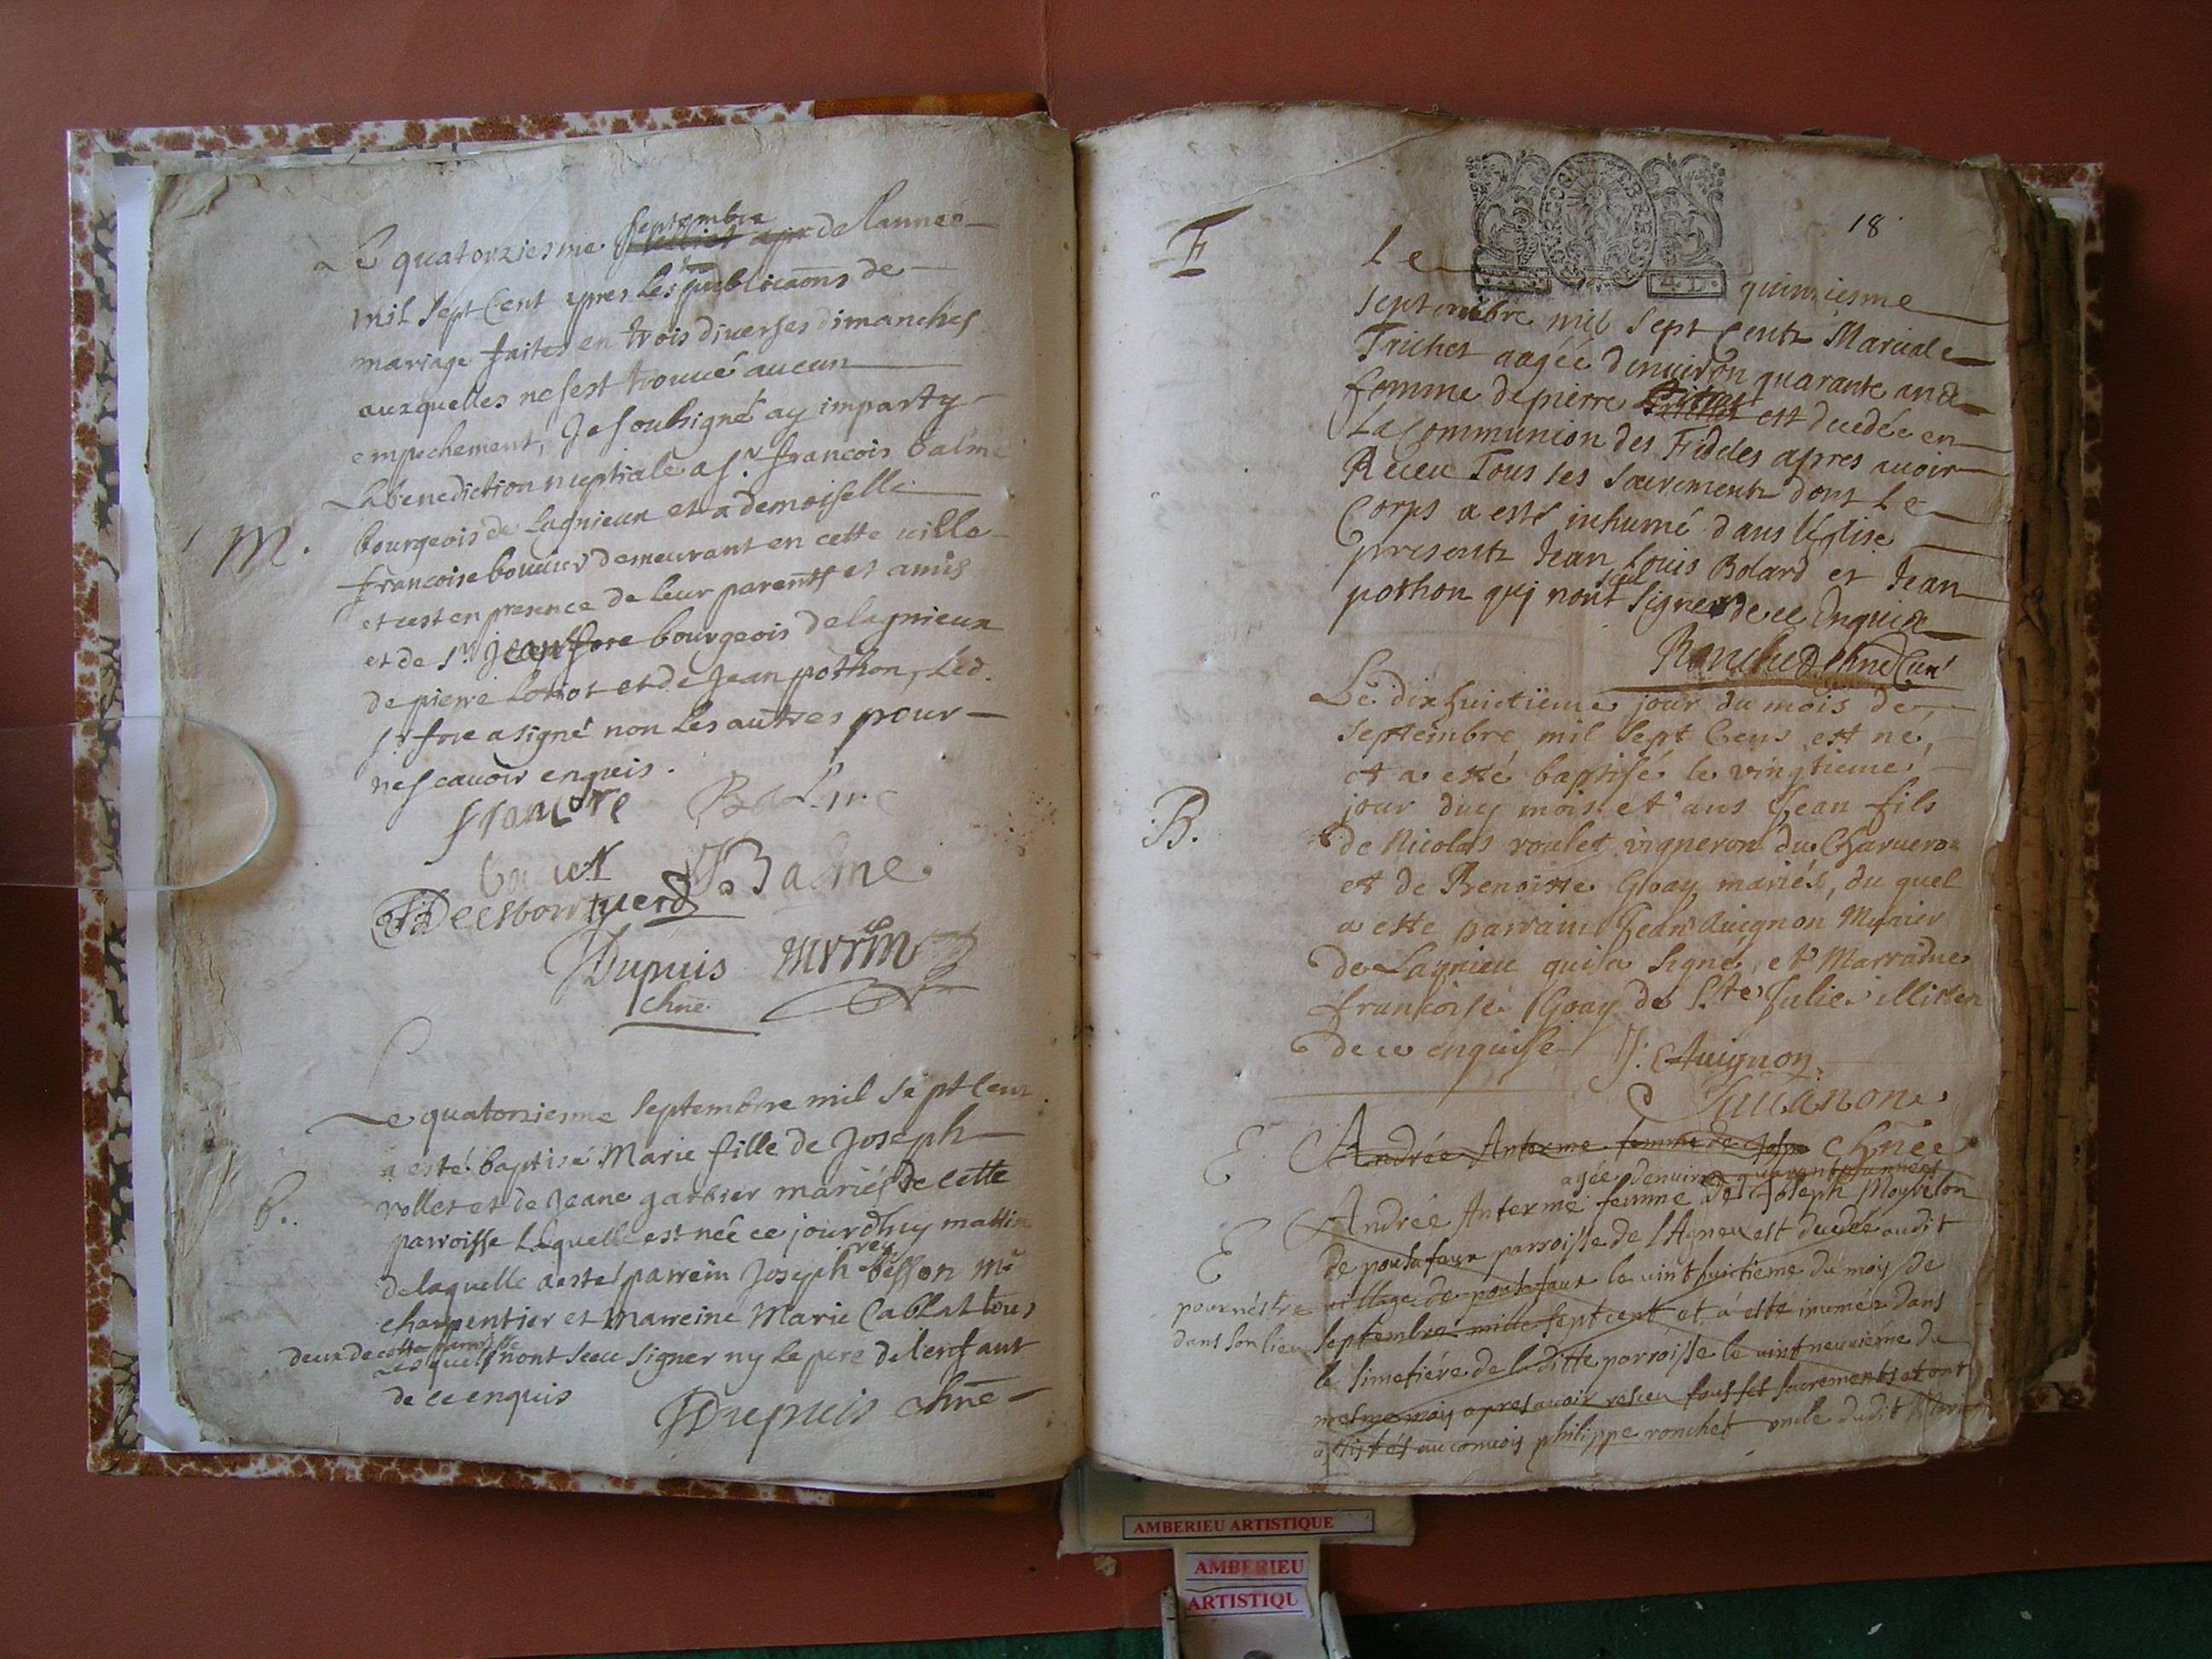 Le quatorziesme septembre de lannee
mil sept Cent apres les publicaons de
mariage faites en trois diverses dimanches
auxquelles ne sest trouué aucun
empechement, Je soubsigné ay imparty
La benediction nuptiale a sr. francois balme
M. bourgeois de Lagnieux et a demoiselle
francoise bouuier demeurant en cette uille
et cest en presence de leur parents et amis
et de sr. bourgeois de lagnieux
de pierre Loriot et de Jean pothon, Led.
sr. fore a signé non les autres pour
nescauoir enquis.
Balme
Balme
Dupuis
chne.
Le quatorzieme septembre mil sept Cent
a esté baptisé Marie fille de Joseph
rollet et de Jeane garbier mariés de cette
B. parroisse Laquelle est née ce jourdhuy mattin
de laquelle a esté parrein Joseph besson Me
charpentier et marreine Marie Cablat tous
deux de cette parroisse
Lesquels nont sceu signer ny le pere de lenfant
de ce enquis
Dupuis chne
18
4 D.
F
Le quinziesme
septembre mil sept Centz
Trichet aagée denuiron quarante ans
femme de pierre est decedée en
La Communion des Fideles apres auoir
Receu Tous ses sacrements dont Le
Corps a esté inhumé dans léglise
presents Jean Louis Bolard et Jean
pothon qui nont sceu signer de ce Enquis
Le dix huictieme jour du mois de
septembre mil sept Cens est né,
et a esté baptisé le vingtieme
jour duy mois et ans Jean fils
B. de Nicolas roulet vigneron du Charueron
et de Benoiste Goay mariés, du quel
a este parrain Jean Auignon Munier
de Lagnieu qui a signé, et Marraine
francoise Goay de Ste Julie illitere
de ce enquise J. Auignon
E. Andrée Anterme femme de chnee
agée denuiron quarant
Andrée Anterme femme de Joseph
E de portafaur parroisse de lAgneu est decedée audit
pour nestre village de portafaur le uint huictieme du moy de
dans son lieu septembre mille sept cent et a esté inumée dans
le simetiére de laditte parroisse le uint neuuieme du
mesme moy apres auoir reseu tous ses sacrements et ont
assistés au conuoy philippe ronchet oncle dudit
AMBERIEU ARTISTIQUE
AMBERIEU
ARTISTIQU